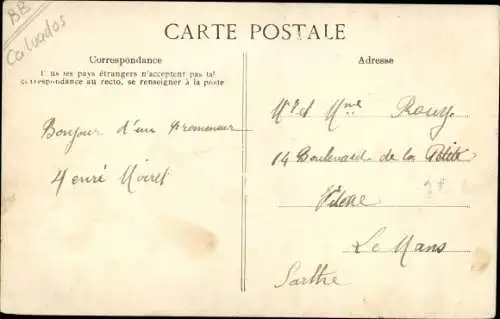 BB
Calvados
CARTE POSTALE
Correspondance
Tous les pays étrangers n'acceptent pas la
correspondance au recto, se renseigner à la poste
Adresse
Bonjour d'un promeneur
Henré
Mr et Mme Rouy
14 Boulevard de la Petite
Vitesse
Le Mans
Sarthe